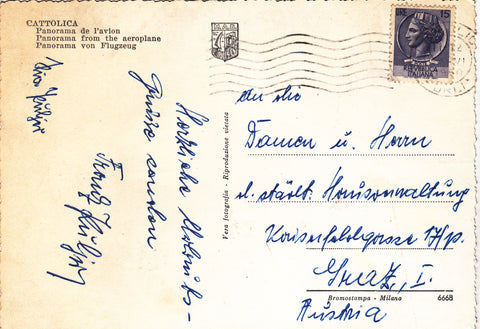 CATTOLICA
Panorama de l'avion
Panorama from the aeroplane
Panorama von Flugzeug
LIRE 15
Herzliche Urlaubs-
grüsse senden
Franz
Vera fotografia - Riproduzione vietata
An die
Damen u. Herrn
d. städt. Hausverwaltung
Kaiserfeldgasse 17/p.
Graz, I.
Austria
Bromostampa - Milano
6668